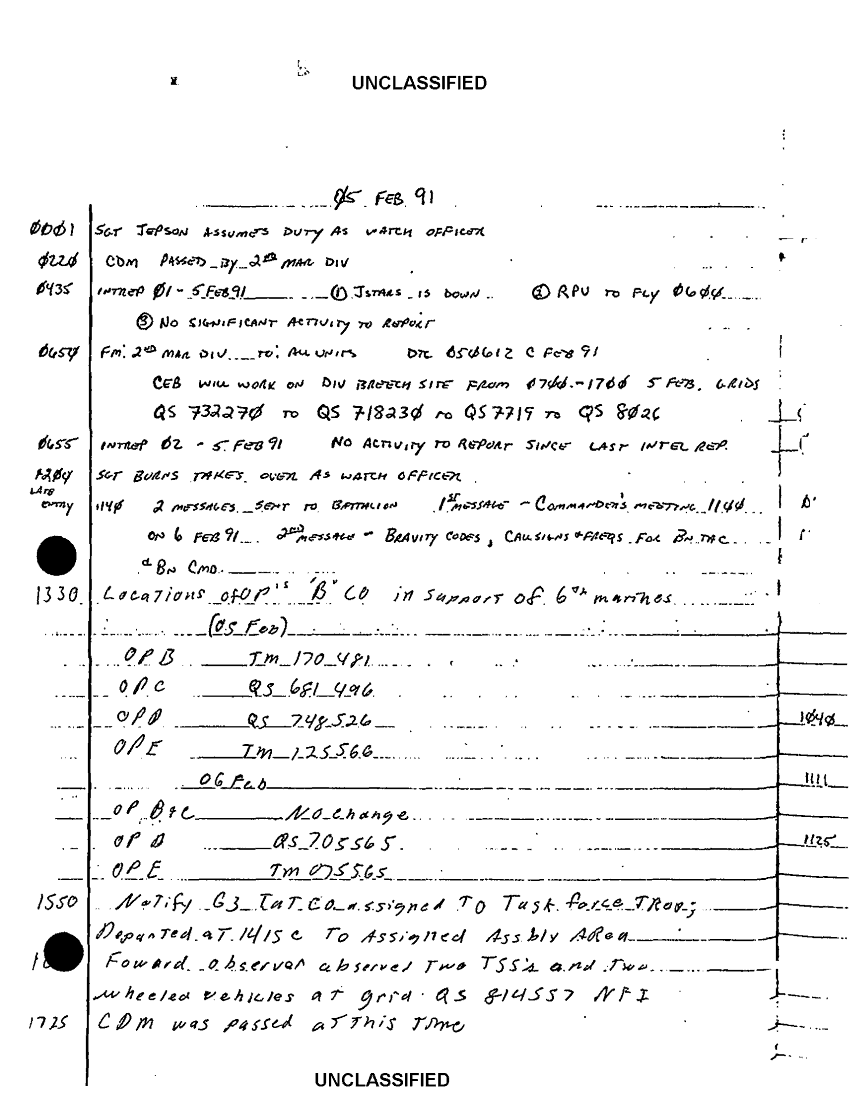 UNCLASSIFIED
Ø5 FEB 91
ØØØ1 SGT JEPSON ASSUMES DUTY AS WATCH OFFICER
Ø22Ø CDM PASSED BY 2ND MAR DIV
Ø435 INTREP Ø1 - 5 FEB 91 ① JSTARS IS DOWN ② RPU TO FLY Ø6ØØ
③ NO SIGNIFICANT ACTIVITY TO REPORT
Ø65Ø FM: 2ND MAR DIV TO: ALL UNITS Ø5Ø612 C FEB 91
CEB WILL WORK ON DIV BREECH SITE FROM Ø7ØØ-17ØØ 5 FEB. GRIDS
QS 73227Ø TO QS 71823Ø TO QS 7719 TO QS 8Ø26
Ø655 INTREP Ø2 - 5 FEB 91 NO ACTIVITY TO REPORT SINCE LAST INTEL REP.
12ØØ SGT BURNS TAKES OVER AS WATCH OFFICER
LATE
ENTRY 114Ø 2 MESSAGES SENT TO BATTALION 1ST MESSAGE - COMMANDER'S MEETING 11ØØ
ON 6 FEB 91 2ND MESSAGE - BRAVITY CODES, CALLSIGNS + FREQS FOR BN TAC
+ BN CMD.
1330 Locations of OP's 'B' CO in support of 6th marines
(05 Feb)
OP B TM 170 481
OP C QS 681 496
OP D QS 748526
1Ø4Ø
OP E TM 125566
06 Feb
1111
OP B+C No change
OP D QS 705565
1125
OP E TM 075565
1550 Notify G3 TaT CO assigned TO Task force TRoy;
Departed aT 1415 c To Assigned Assbly ARea
Foward observer observed Two TSS's and Two
wheeled vehicles aT grid QS 814557 NFI
1725 CDM was passed aT This Time
UNCLASSIFIED